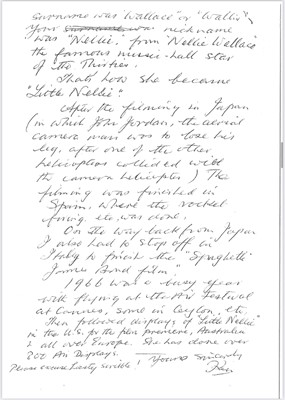 surname was "Wallace" or "Wallis",
Your surname was nickname
was "Nellie" from Nellie Wallace
the famous music-hall star
of the Thirties.
Thats how she became
"Little Nellie".
After the filming in Japan
(in which John Jordan, the aerial
camera man was to lose his
leg, after one of the other
helicopters collided with
the camera helicopter) The
filming was finished in
Spain, where the rocket
firing, etc, was done.
On the way back from Japan
I also had to stop off in
Italy to finish the "Spaghetti
James Bond film"
1966 was a busy year
with flying at the Air Festival
at Cannes, some in Ceylon, etc.
Then followed displays of "Little Nellie"
in the U.S. for the film premiere, Australia
& all over Europe. She has done over
200 Air Displays.
Yours Sincerely
Please excuse hasty scribble!
Ken